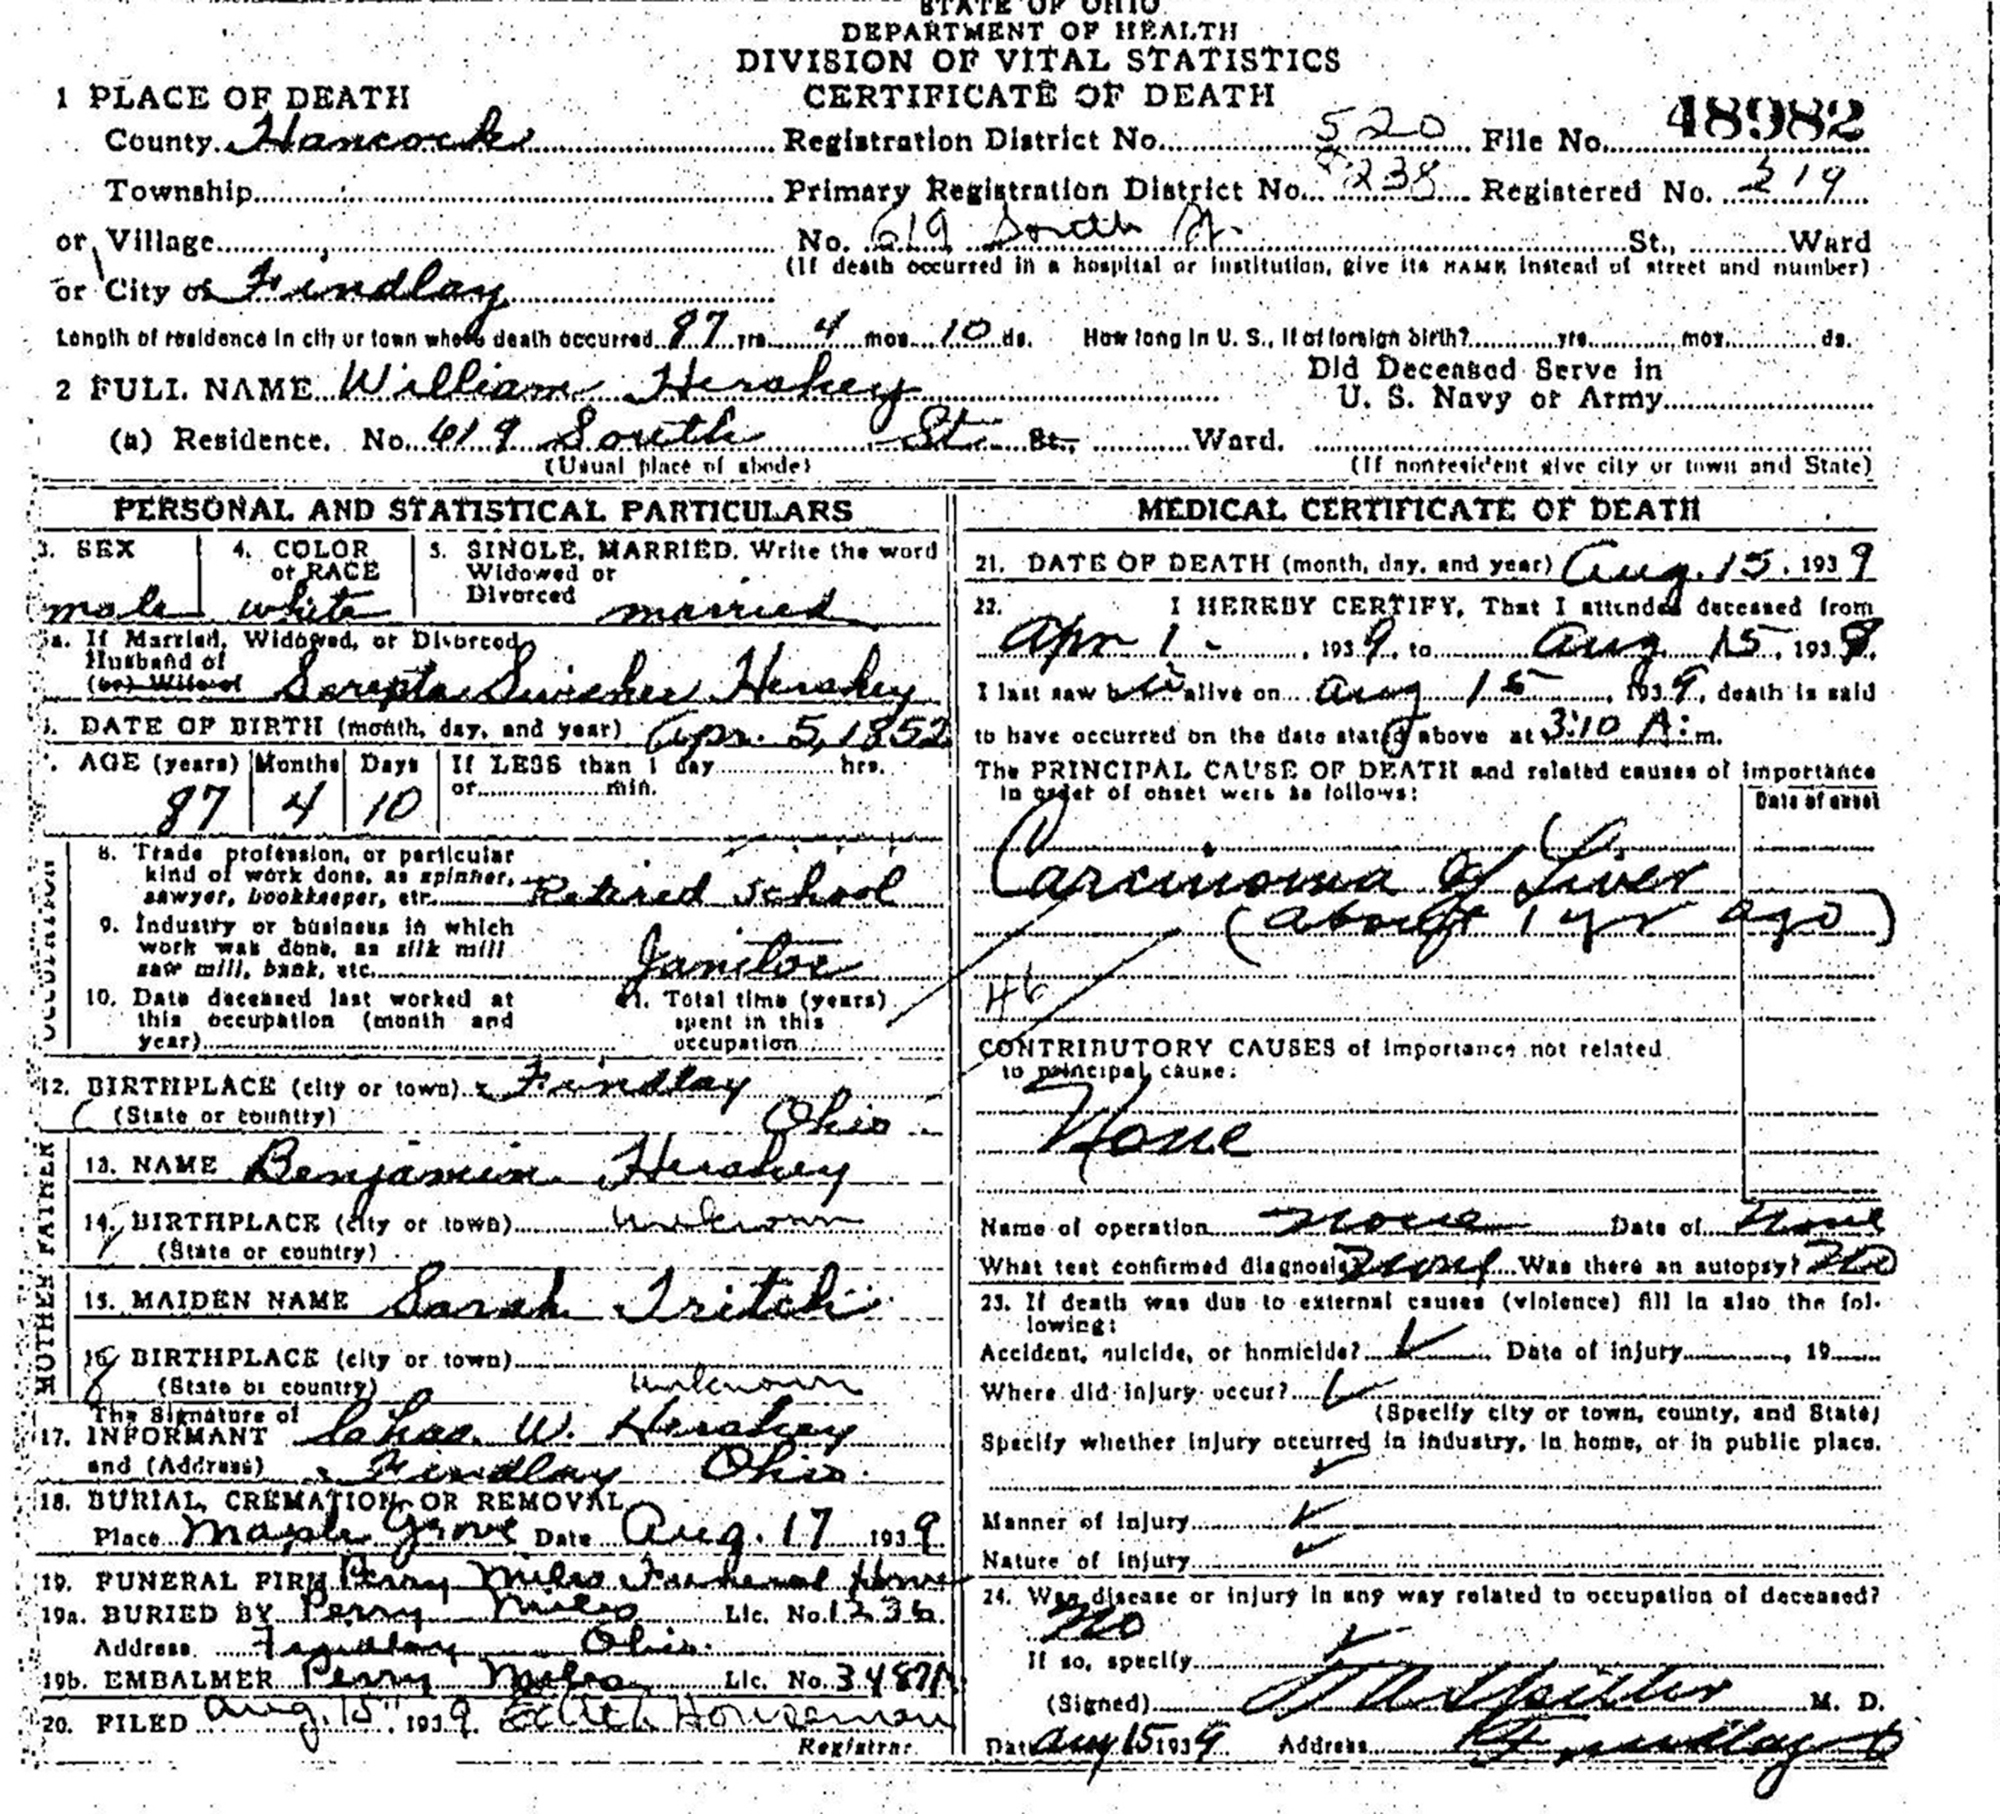 STATE OF OHIO
DEPARTMENT OF HEALTH
DIVISION OF VITAL STATISTICS
CERTIFICATE OF DEATH
1 PLACE OF DEATH
48982
County Hancock Registration District No. 520 File No.
Township Primary Registration District No. 8238 Registered No. 219
or Village No. 619 South St. St., Ward
(If death occurred in a hospital or institution, give its NAME instead of street and number)
or City of Findlay
Length of residence in city or town where death occurred 87 yrs. 4 mos. 10 ds. How long in U. S., if of foreign birth? yrs. mos. ds.
2 FULL NAME William Hershey Did Deceased Serve in U. S. Navy or Army
(a) Residence. No. 619 South St. St., Ward.
(Usual place of abode) (If nonresident give city or town and State)
PERSONAL AND STATISTICAL PARTICULARS
3. SEX
male
4. COLOR or RACE
white
5. SINGLE, MARRIED, Write the word
Widowed or
Divorced married
5a. If Married, Widowed, or Divorced
Husband of
(or) Wife of Serepta Swisher Hershey
6. DATE OF BIRTH (month, day, and year) Apr. 5, 1852
7. AGE (years) Months Days If LESS than 1 day hrs.
or min.
87 4 10
OCCUPATION
8. Trade profession, or particular
kind of work done, as spinner,
sawyer, bookkeeper, etc. Retired School
9. Industry or business in which
work was done, as silk mill
saw mill, bank, etc. Janitor
10. Date deceased last worked at
this occupation (month and
year)
11. Total time (years)
spent in this
occupation
12. BIRTHPLACE (city or town) Findlay
(State or country) Ohio
FATHER
13. NAME Benjamin Hershey
14. BIRTHPLACE (city or town) unknown
(State or country)
MOTHER
15. MAIDEN NAME Sarah Tritch
16. BIRTHPLACE (city or town)
(State or country) unknown
The Signature of
17. INFORMANT Chas. W. Hershey
and (Address) Findlay Ohio
18. BURIAL, CREMATION, OR REMOVAL
Place Maple Grove Date Aug. 17 1939
19. FUNERAL FIRM Perry Miles Funeral Home
19a. BURIED BY Perry Miles Lic. No. 1236
Address Findlay Ohio.
19b. EMBALMER Perry Miles Lic. No. 3487A
20. FILED Aug. 15 1939. Edith Houseman
Registrar
MEDICAL CERTIFICATE OF DEATH
21. DATE OF DEATH (month, day, and year) Aug. 15, 1939
22. I HEREBY CERTIFY, That I attended deceased from
Apr 1 - , 1939, to Aug 15, 1939.
I last saw him alive on Aug 15, 1939, death is said
to have occurred on the date stated above at 3:10 A. m.
The PRINCIPAL CAUSE OF DEATH and related causes of importance
in order of onset were as follows:
Date of onset
Carcinoma of Liver
(about 1 yr ago)
46
CONTRIBUTORY CAUSES of importance not related
to principal cause:
None
Name of operation none Date of None
What test confirmed diagnosis? None Was there an autopsy? No
23. If death was due to external causes (violence) fill in also the fol-
lowing:
Accident, suicide, or homicide? Date of injury , 19
Where did injury occur?
(Specify city or town, county, and State)
Specify whether injury occurred in industry, in home, or in public place.
Manner of injury
Nature of injury
24. Was disease or injury in any way related to occupation of deceased?
No
If so, specify
(Signed) M. D.
Date Aug 15 1939 Address Findlay O